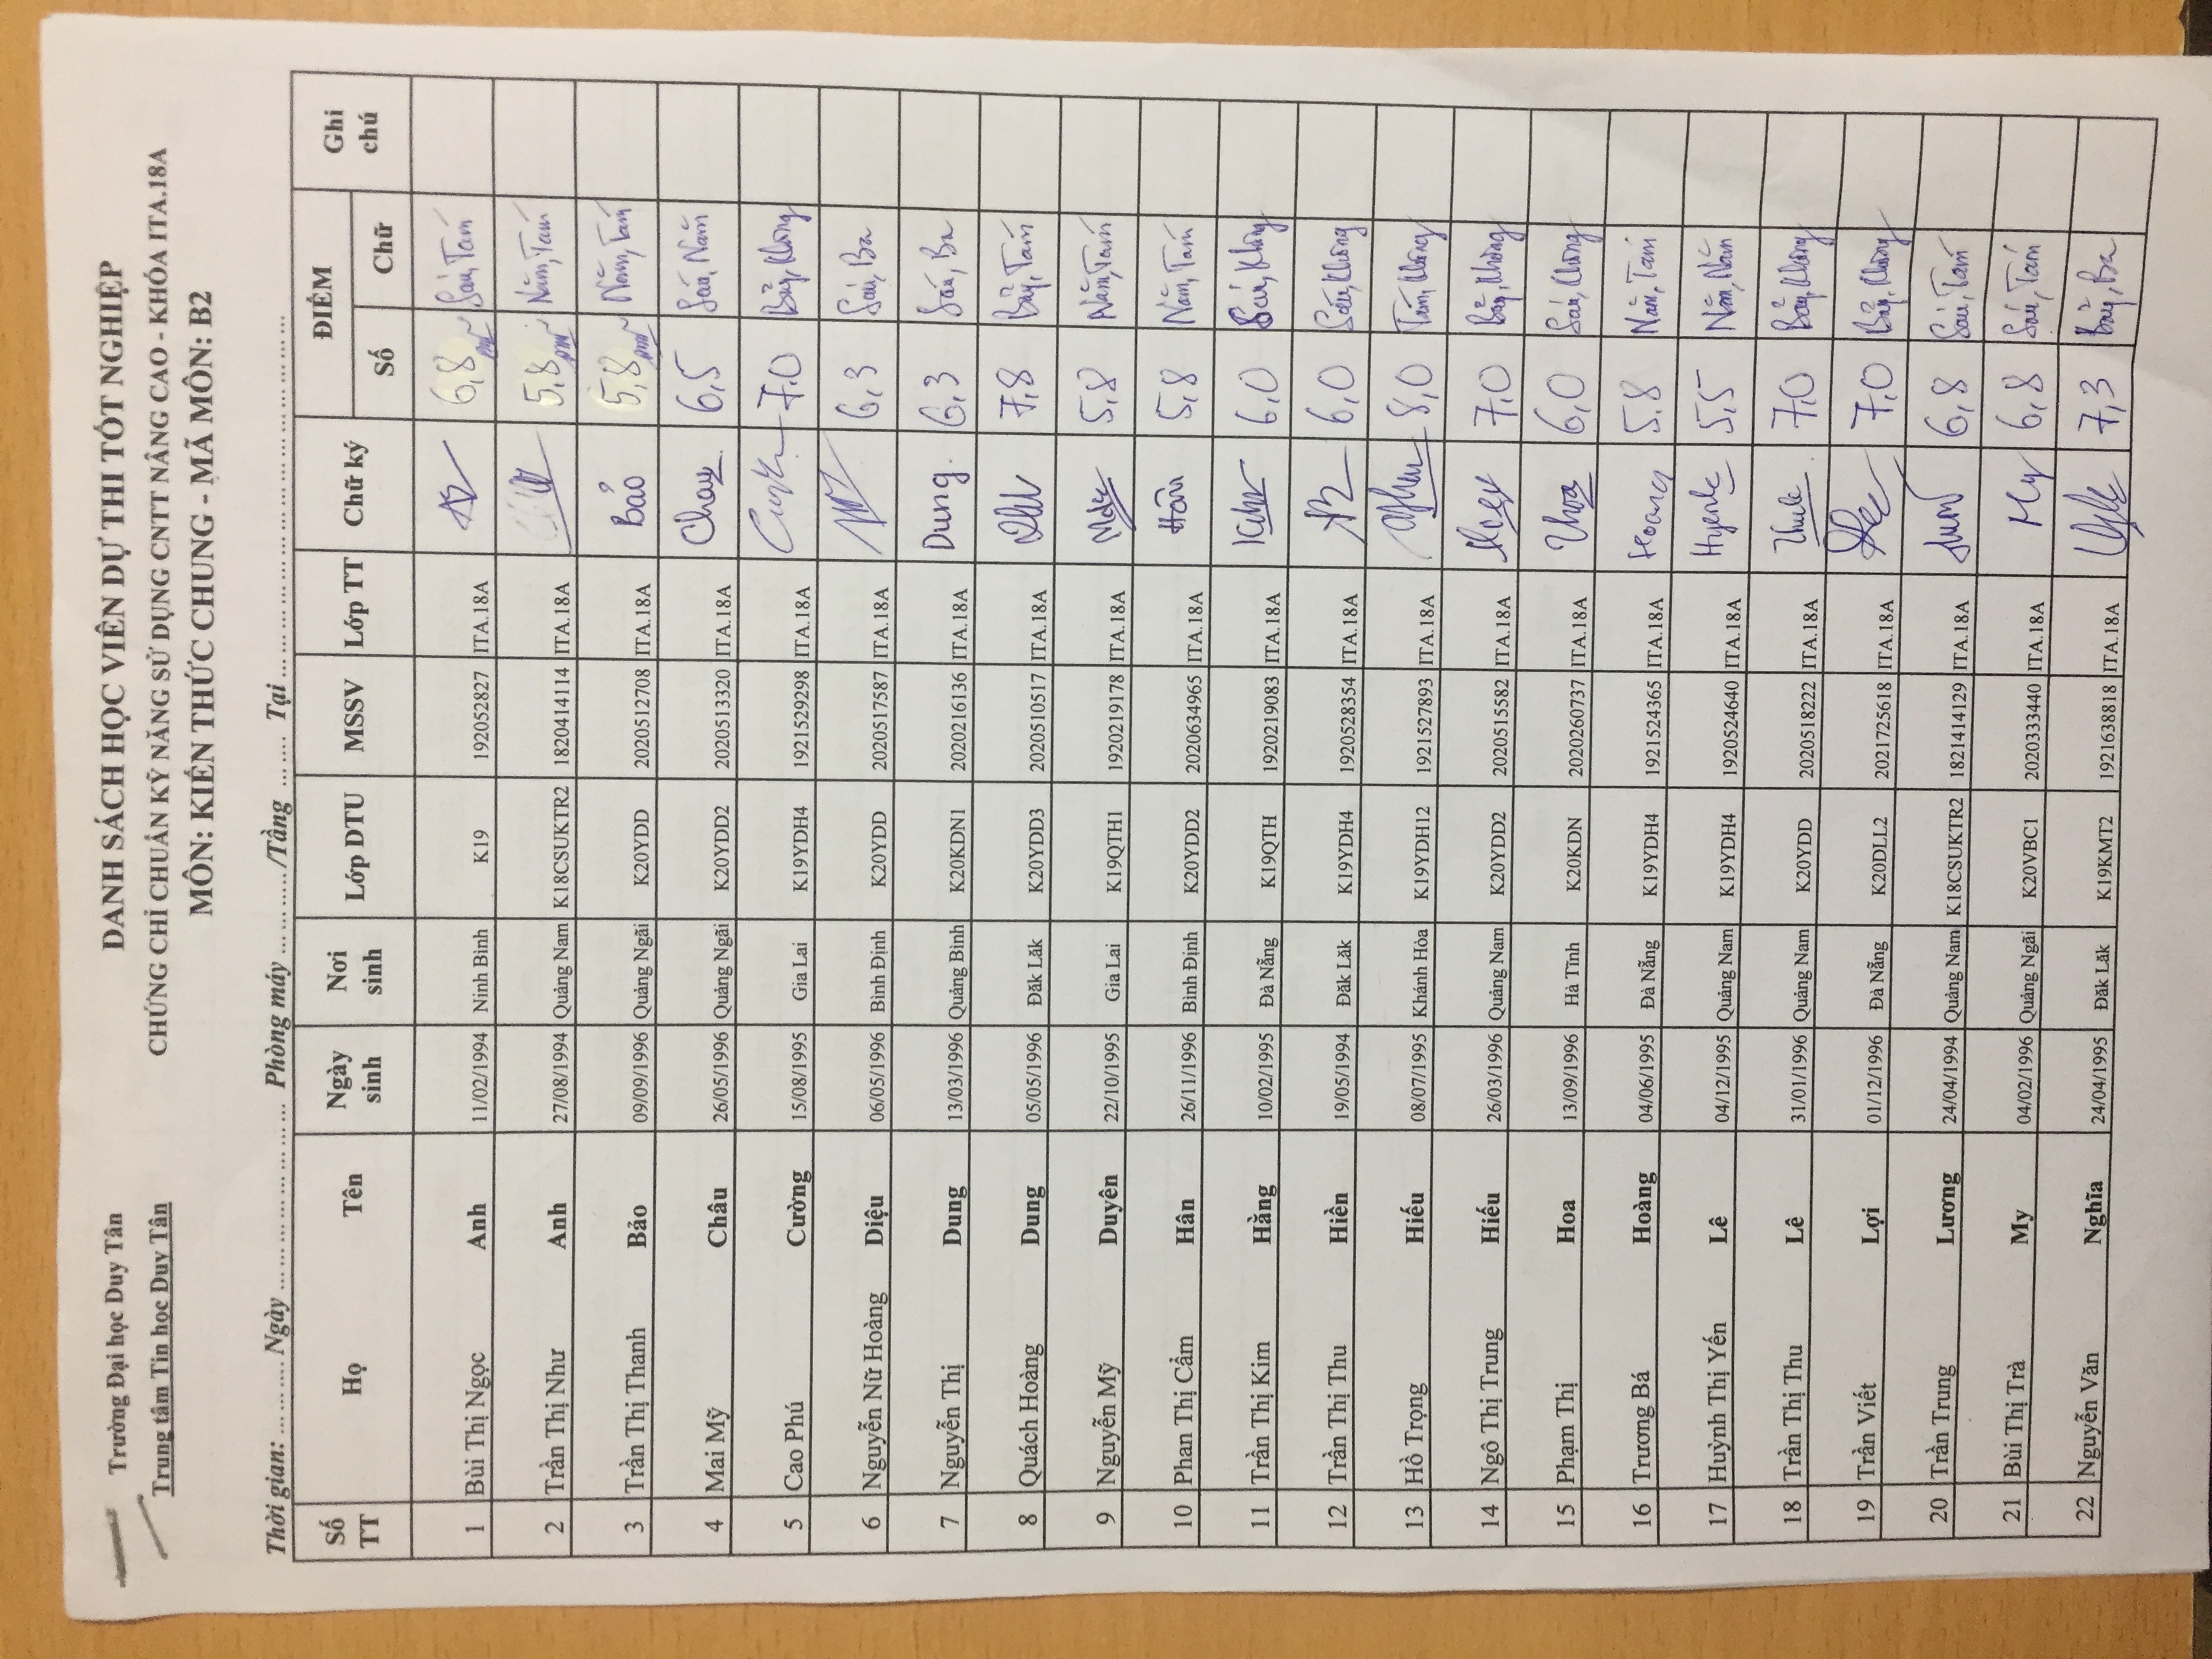 Trường Đại học Duy Tân
Trung tâm Tin học Duy Tân
DANH SÁCH HỌC VIÊN DỰ THI TỐT NGHIỆP
CHỨNG CHỈ CHUẨN KỸ NĂNG SỬ DỤNG CNTT NÂNG CAO - KHÓA ITA.18A
MÔN: KIẾN THỨC CHUNG - MÃ MÔN: B2
Thời gian: ... ... ... Ngày ... ... ... ... ... Phòng máy ... ... ... /Tầng ... ... ... Tại ... ... ... ... ... ... ...
Số TT Họ Tên Ngày sinh Nơi sinh Lớp DTU MSSV Lớp TT Chữ ký ĐIỂM Số Chữ Ghi chú
1 Bùi Thị Ngọc Anh 11/02/1994 Ninh Bình K19 192052827 ITA.18A 6,8 Sáu, Tám
2 Trần Thị Như Anh 27/08/1994 Quảng Nam K18CSUKTR2 1820414114 ITA.18A 5,8 Năm, Tám
3 Trần Thị Thanh Bảo 09/09/1996 Quảng Ngãi K20YDD 2020512708 ITA.18A Bảo 5,8 Năm, Tám
4 Mai Mỹ Châu 26/05/1996 Quảng Ngãi K20YDD2 2020513320 ITA.18A 6,5 Sáu, Năm
5 Cao Phú Cường 15/08/1995 Gia Lai K19YDH4 1921529298 ITA.18A 7,0 Bảy, Không
6 Nguyễn Nữ Hoàng Diệu 06/05/1996 Bình Định K20YDD 2020517587 ITA.18A 6,3 Sáu, Ba
7 Nguyễn Thị Dung 13/03/1996 Quảng Bình K20KDN1 2020216136 ITA.18A Dung. 6,3 Sáu, Ba
8 Quách Hoàng Dung 05/05/1996 Đăk Lăk K20YDD3 2020510517 ITA.18A 7,8 Bảy, Tám
9 Nguyễn Mỹ Duyên 22/10/1995 Gia Lai K19QTH1 1920219178 ITA.18A 5,8 Năm, Tám
10 Phan Thị Cẩm Hân 26/11/1996 Bình Định K20YDD2 2020634965 ITA.18A Hân 5,8 Năm, Tám
11 Trần Thị Kim Hằng 10/02/1995 Đà Nẵng K19QTH 1920219083 ITA.18A 6,0 Sáu, Không
12 Trần Thị Thu Hiền 19/05/1994 Đăk Lăk K19YDH4 1920528354 ITA.18A 6,0 Sáu, Không
13 Hồ Trọng Hiếu 08/07/1995 Khánh Hòa K19YDH12 1921527893 ITA.18A 8,0 Tám, Không
14 Ngô Thị Trung Hiếu 26/03/1996 Quảng Nam K20YDD2 2020515582 ITA.18A 7,0 Bảy, Không
15 Phạm Thị Hoa 13/09/1996 Hà Tĩnh K20KDN 2020260737 ITA.18A 6,0 Sáu, Không
16 Trương Bá Hoàng 04/06/1995 Đà Nẵng K19YDH4 1921524365 ITA.18A Hoang 5,8 Năm, Tám
17 Huỳnh Thị Yến Lê 04/12/1995 Quảng Nam K19YDH4 1920524640 ITA.18A 5,5 Năm, Năm
18 Trần Thị Thu Lê 31/01/1996 Quảng Nam K20YDD 2020518222 ITA.18A 7,0 Bảy, Không
19 Trần Viết Lợi 01/12/1996 Đà Nẵng K20DLL2 2021725618 ITA.18A 7,0 Bảy, Không
20 Trần Trung Lương 24/04/1994 Quảng Nam K18CSUKTR2 1821414129 ITA.18A 6,8 Sáu, Tám
21 Bùi Thị Trà My 04/02/1996 Quảng Ngãi K20VBC1 2020333440 ITA.18A My 6,8 Sáu, Tám
22 Nguyễn Văn Nghĩa 24/04/1995 Đăk Lăk K19KMT2 1921638818 ITA.18A 7,3 Bảy, Ba